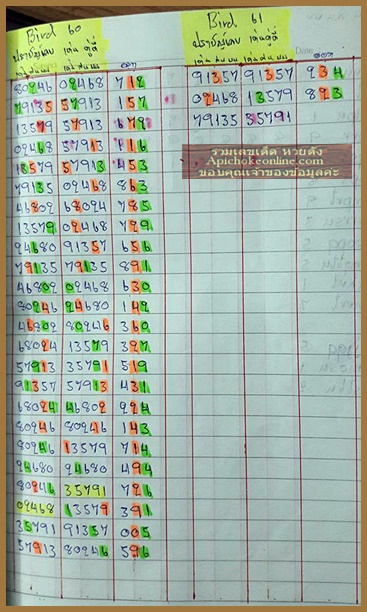 Bird 60
ปราชญ์แบบ เด่นคู่คี่
เด่น สน บน เด่น สน บน ออก
80246 02468 712
79135 57913 157
13579 57913 678
02468 57913 116
13579 57913 453
79135 02468 863
46802 68024 785
13579 02468 729
24680 91357 656
79135 79135 891
46802 02468 630
80246 24680 142
46802 80246 360
68024 13579 327
57913 35791 519
91357 57913 431
68024 46802 224
80246 80246 143
80246 13579 714
24680 24680 494
80246 35791 726
02468 13579 391
35791 91357 005
57913 80246 596
Bird 61
ปราชญ์แบบ เด่นคู่คี่
เด่น สน บน เด่น สน บน ออก
91357 91357 234
02468 13579 823
79135 35791
รวมเลขเด็ด หวยดัง
Apichokeonline.com
ขอบคุณเจ้าของข้อมูลค่ะ